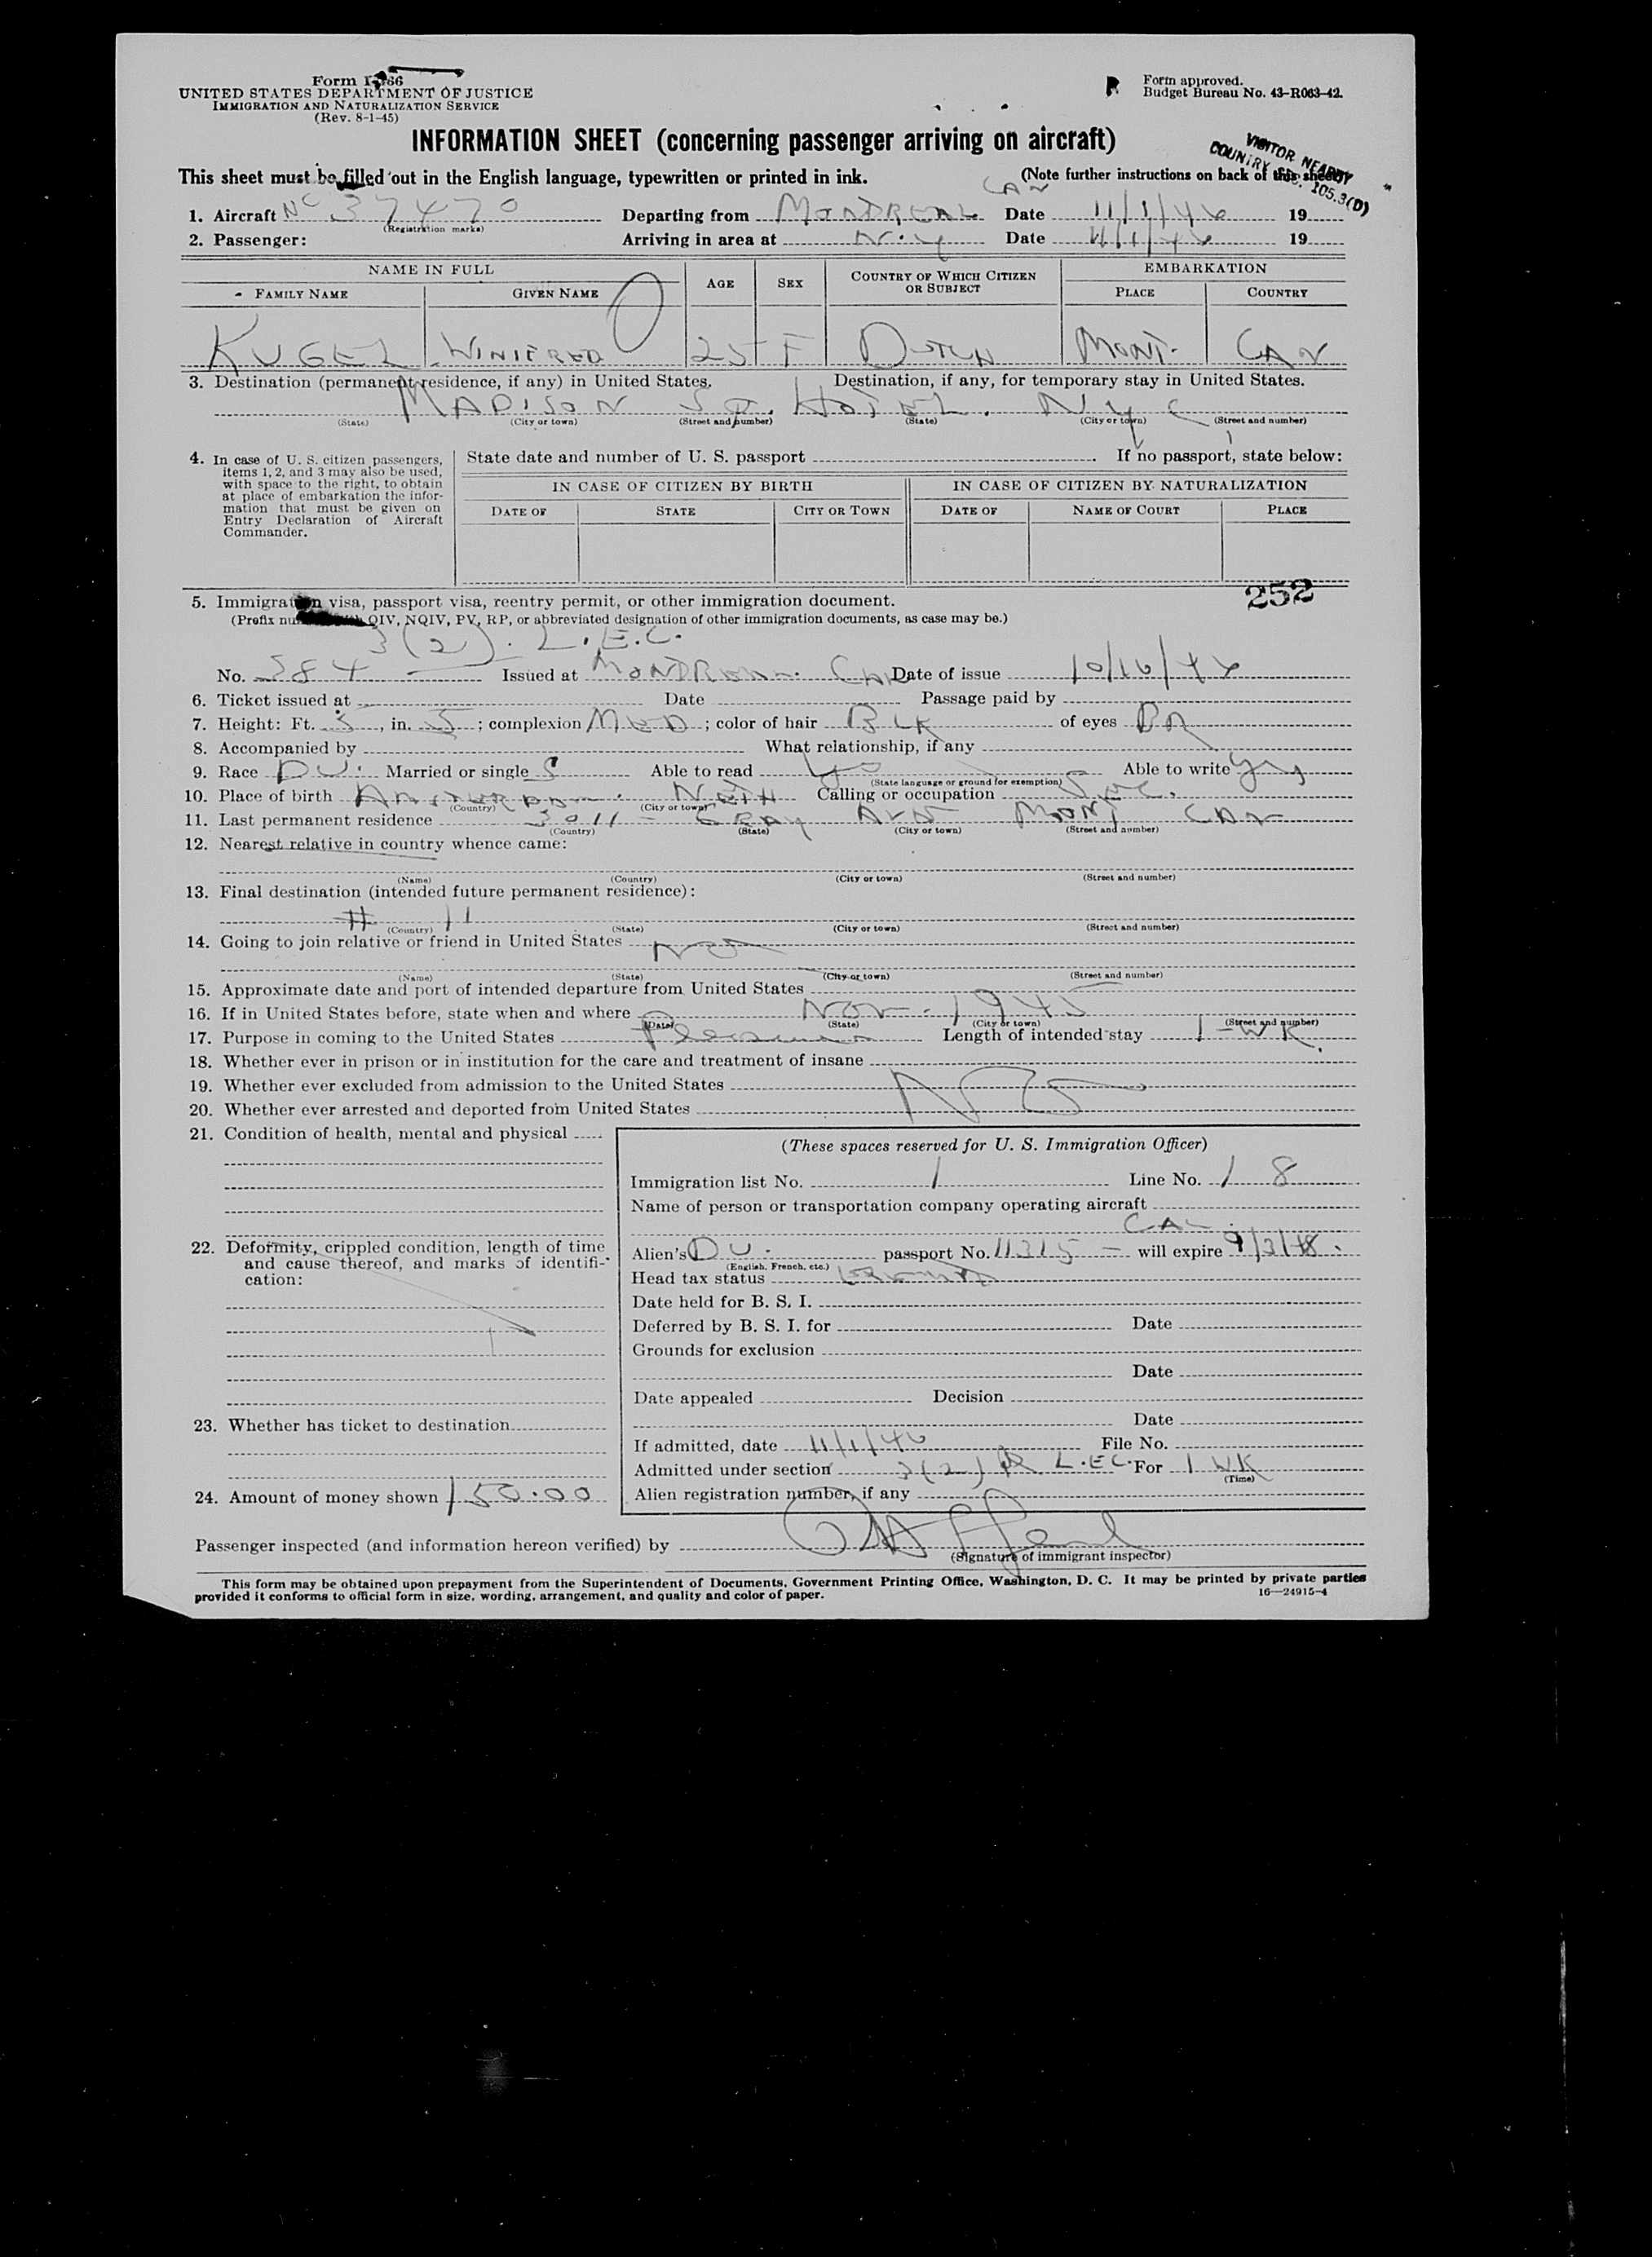 Form I-466
UNITED STATES DEPARTMENT OF JUSTICE
IMMIGRATION AND NATURALIZATION SERVICE
(Rev. 8-1-45)
Form approved.
Budget Bureau No. 43-R063-42.
INFORMATION SHEET (concerning passenger arriving on aircraft)
VISITOR NEARBY
COUNTRY SEC. 105.3(D)
This sheet must be filled out in the English language, typewritten or printed in ink. (Note further instructions on back of this sheet)
CAN
1. Aircraft NC 37470 Departing from MONDREAL Date 11/1/46 19
(Registration marks)
2. Passenger: Arriving in area at N.Y Date 11/1/46 19
NAME IN FULL AGE SEX COUNTRY OF WHICH CITIZEN OR SUBJECT EMBARKATION
FAMILY NAME GIVEN NAME PLACE COUNTRY
KUGEL WINIFRED 25 F DUTCH MONT. CAN
3. Destination (permanent residence, if any) in United States. Destination, if any, for temporary stay in United States.
MADISON SQ. HOTEL. NYC
(State) (City or town) (Street and number) (State) (City or town) (Street and number)
4. In case of U. S. citizen passengers, items 1, 2, and 3 may also be used, with space to the right, to obtain at place of embarkation the information that must be given on Entry Declaration of Aircraft Commander.
State date and number of U. S. passport If no passport, state below:
IN CASE OF CITIZEN BY BIRTH IN CASE OF CITIZEN BY NATURALIZATION
DATE OF STATE CITY OR TOWN DATE OF NAME OF COURT PLACE
252
5. Immigration visa, passport visa, reentry permit, or other immigration document.
(Prefix QIV, NQIV, PV, RP, or abbreviated designation of other immigration documents, as case may be.)
3(2). L.E.C.
No. 384 Issued at MONDREAL CAN Date of issue 10/16/46
6. Ticket issued at Date Passage paid by
7. Height: Ft. 5, in. 5; complexion MED; color of hair BLK of eyes BR
8. Accompanied by What relationship, if any
9. Race DU. Married or single S Able to read Yes Able to write Yes
(State language or ground for exemption)
10. Place of birth AMSTERDAM. NETH Calling or occupation SEC.
(Country) (City or town)
11. Last permanent residence 3011 - GRAY AVE MONT CAN
(Country) (State) (City or town) (Street and number)
12. Nearest relative in country whence came:
(Name) (Country) (City or town) (Street and number)
13. Final destination (intended future permanent residence):
# 11
(Country) (State) (City or town) (Street and number)
14. Going to join relative or friend in United States NO
(Name) (State) (City or town) (Street and number)
15. Approximate date and port of intended departure from United States
16. If in United States before, state when and where NOV - 1945
(Date) (State) (City or town) (Street and number)
17. Purpose in coming to the United States Pleasure Length of intended stay 1-WK.
18. Whether ever in prison or in institution for the care and treatment of insane
19. Whether ever excluded from admission to the United States NO
20. Whether ever arrested and deported from United States
21. Condition of health, mental and physical
(These spaces reserved for U. S. Immigration Officer)
Immigration list No. 1 Line No. 1 8
Name of person or transportation company operating aircraft
CAL.
22. Deformity, crippled condition, length of time and cause thereof, and marks of identification:
Alien's DU. passport No. 11315 - will expire 9/3/48.
(English, French, etc.)
Head tax status
Date held for B. S. I.
Deferred by B. S. I. for Date
Grounds for exclusion
Date
Date appealed Decision
23. Whether has ticket to destination
Date
If admitted, date 11/1/46 File No.
Admitted under section 3(2) L.EC. For 1 WK
(Time)
24. Amount of money shown 150.00
Alien registration number, if any
Passenger inspected (and information hereon verified) by
(Signature of immigrant inspector)
This form may be obtained upon prepayment from the Superintendent of Documents, Government Printing Office, Washington, D. C. It may be printed by private parties
provided it conforms to official form in size, wording, arrangement, and quality and color of paper. 16—24915-4